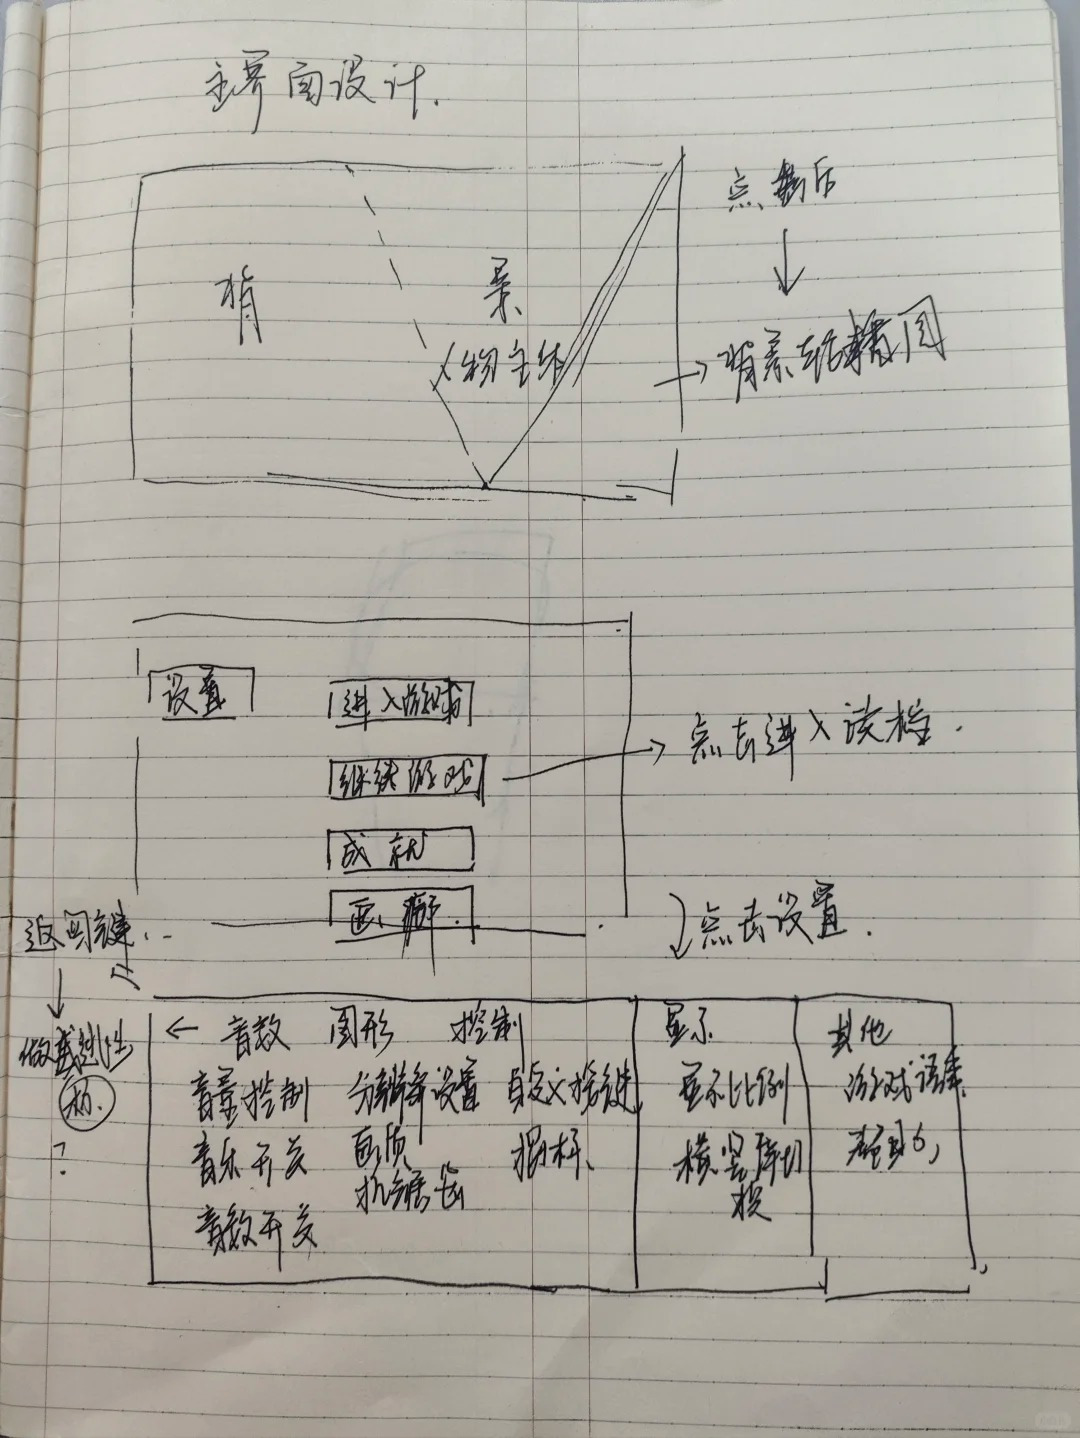 主界面设计.
点击后
背 景
人物主体
背景
设置
进入游戏
继续游戏
点击进入读档.
成就
画廊.
返回键..
点击设置.
← 音效 图形 控制 显示 其他
做
音量控制 分辨率设置 自定义按键 显示比例 游戏语言
标.
?
音乐开关 画质 摇杆、 横竖屏切
抗锯齿 换
音效开关